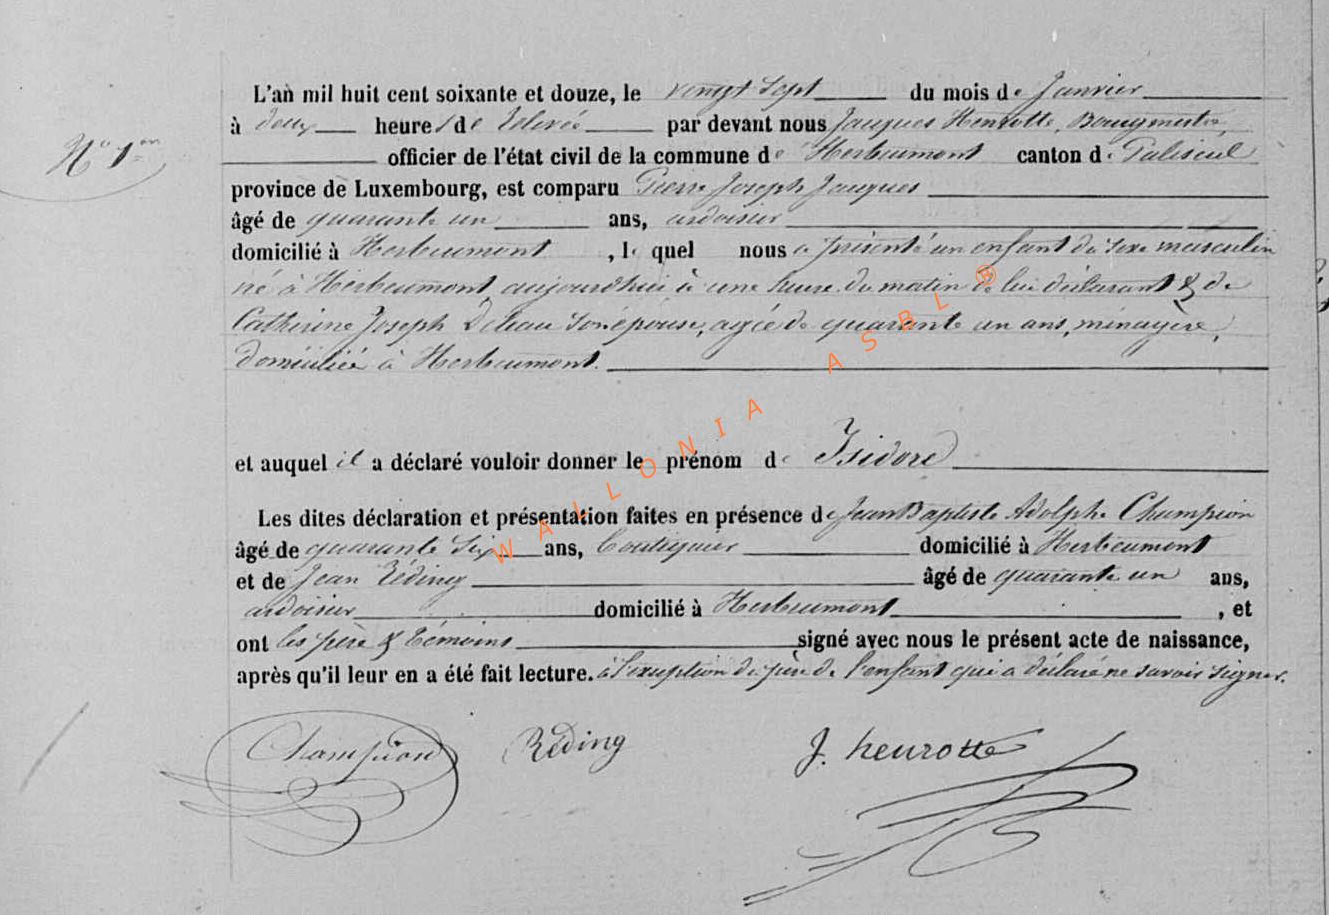 L'an mil huit cent soixante et douze, le vingt sept du mois de Janvier
N° 1er
à deux heures de relevée par devant nous Jacques Henrotte, Bourgmestre,
officier de l'état civil de la commune de Herbeumont canton de Paliseul
province de Luxembourg, est comparu Pierre Joseph Jacques
âgé de quarante un ans, ardoisier
domicilié à Herbeumont, lequel nous a présenté un enfant du sexe masculin
né à Herbeumont aujourdhui à une heure du matin de lui déclarant & de
Catherine Joseph son épouse, agée de quarante un ans, ménagère,
domiciliée à Herbeumont.
et auquel il a déclaré vouloir donner le prénom de Isidore
Les dites déclaration et présentation faites en présence de Jean Baptiste Adolphe Champion
âgé de quarante six ans, domicilié à Herbeumont
et de Jean Réding âgé de quarante un ans,
ardoisier domicilié à Herbeumont, et
ont les père & témoins signé avec nous le présent acte de naissance,
après qu'il leur en a été fait lecture. à l'exception du père de l'enfant qui a déclaré ne savoir signer.
Champion Réding J. henrotte
WALLONIA ASBL ®